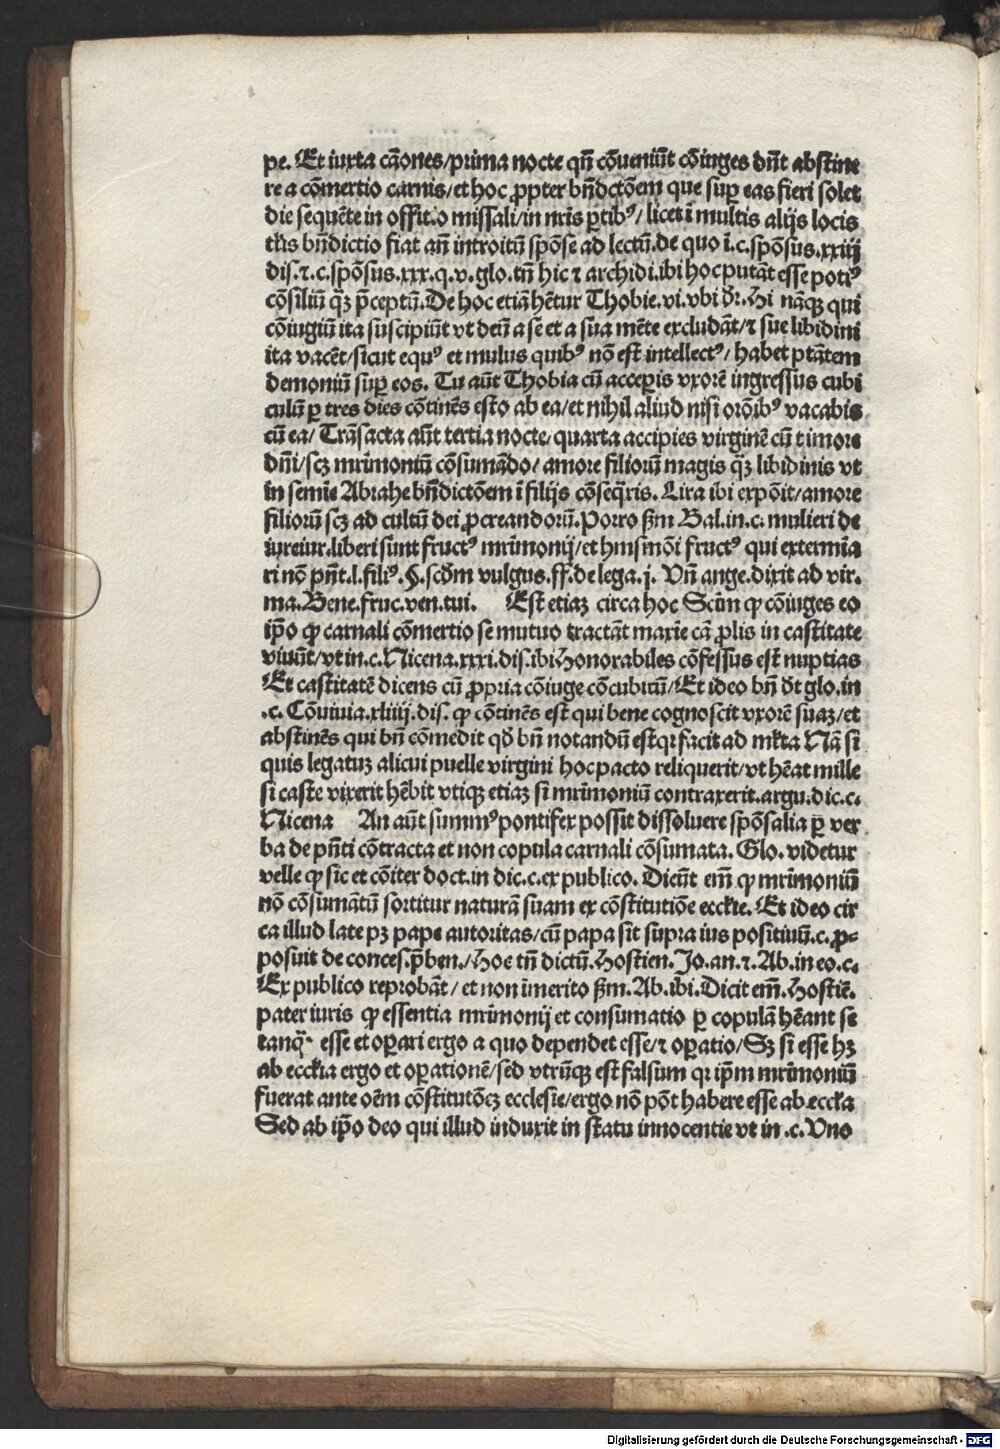 pe. Et iuxta cãones/prima nocte qñ cõueniũt cõiuges dñt abstine
re a cõmertio carnis/et hoc ꝓpter bñdctõem que suꝑ eas fieri solet
die sequẽte in offit.o missali/in nr̃is ꝑtibꝰ/ licet ĩ multis alijs locis
tl̃is bñdictio fiat añ introitũ spõse ad lectũ.de quo ĩ.c.spõsus.xxiij
dis.⁊.c.spõsus.xxx.q.v.glo.tñ hic ⁊ archidi.ibi hoc putãt esse potiꝰ
cõsiliũ qꝫ p̃ceptũ.De hoc etiã hẽtur Thobie.vi.vbi dr̃.Hi nãqꝫ qui
cõiugiũ ita suscipiũt vt deũ a se et a sua mẽte excludãt/⁊ sue libidini
ita vacẽt/sicut equꝰ et mulus quibꝰ nõ est intellectꝰ/ habet ptãtem
demoniũ suꝑ eos. Tu aũt Thobia cũ acceꝑis vxorẽ ingressus cubi
culũ ꝑ tres dies cõtinẽs esto ab ea/et nihil aliud nisi orõibꝰ vacabis
cũ ea/ Trãsacta aũt tertia nocte/quarta accipies virginẽ cũ timore
dñi/scꝫ mr̃imoniũ cõsumãdo/ amore filiorũ magis qꝫ̃ libidinis vt
in semie Abrahe bñdictõem ĩ filijs cõseq̃ris. Lira ibi expõit/amore
filiorũ scꝫ ad cultũ dei ꝓcreandorũ.Porro ẜm Bal.in.c.mulieri de
iureiur.liberi sunt fructꝰ mr̃imonij/et hmsmõi fructꝰ qui extermia
ri nõ pñt.l.filiꝰ.§.scd̃m vulgus.ff.de lega.j. Vñ ange.dixit ad vir.
ma.Bene.fruc.ven.tui. Est etiaꝫ circa hoc Sciñ ꝙ cõiuges eo
ip̃o ꝙ carnali cõmertio se mutuo tractãt maxiẽ cã ꝓlis in castitate
viuũt/vt in.c.Nicena.xxxi.dis.ibi Honorabiles cõfessus est nuptias
Et castitatẽ dicens cũ ꝓpria cõiuge cõcubitũ/Et ideo bñ dt̃ glo.in
.c. Cõuiuia.xliiij.dis. ꝙ cõtinẽs est qui bene cognoscit vxorẽ suaꝫ/et
abstinẽs qui bñ cõmedit qđ bñ notandũ est qꝛ facit ad ml̃ta Nã si
quis legatuꝫ alicui puelle virgini hoc pacto reliquerit/vt hẽat mille
si caste vixerit hẽbit vtiqꝫ etiaꝫ si mr̃imoniũ contraxerit.argu.dic.c.
Nicena An aũt summꝰ pontifex possit dissoluere spõsalia ꝑ ver
ba de pñti cõtracta et non copula carnali cõsumata. Glo. videtur
velle ꝙ sic et cõiter doct.in dic.c.ex publico. Dicũt em̃ ꝙ mr̃imoniũ
nõ cõsumãtũ sortitur naturã suam ex cõstitutiõe eccl̃ie. Et ideo cir
ca illud late pꝫ pape autoritas/cũ papa sit supra ius positiuũ.c.ꝓ-
posuit de conces.p̃ben./Hoc tñ dictũ.Hostien.Jo.an.⁊.Ab.in eo.c.
Ex publico reprobãt/ et non imerito ẜm.Ab.ibi.Dicit em̃.Hostiẽ.
pater iuris ꝙ essentia mr̃imonij et consumatio ꝑ copulã hẽant se
tanq̃. esse et oꝑari ergo a quo dependet esse/⁊ oꝑatio/Sꝫ si esse hꝫ
ab eccl̃ia ergo et oꝑationẽ/sed vtrũqꝫ est falsum qꝛ ip̃m mr̃imoniũ
fuerat ante oẽm cõstitutõeꝫ ecclesie/ergo nõ põt habere esse ab eccl̃a
Sed ab ip̃o deo qui illud induxit in statu innocentie vt in .c.Vno
Digitalisierung gefördert durch die Deutsche Forschungsgemeinschaft - DFG